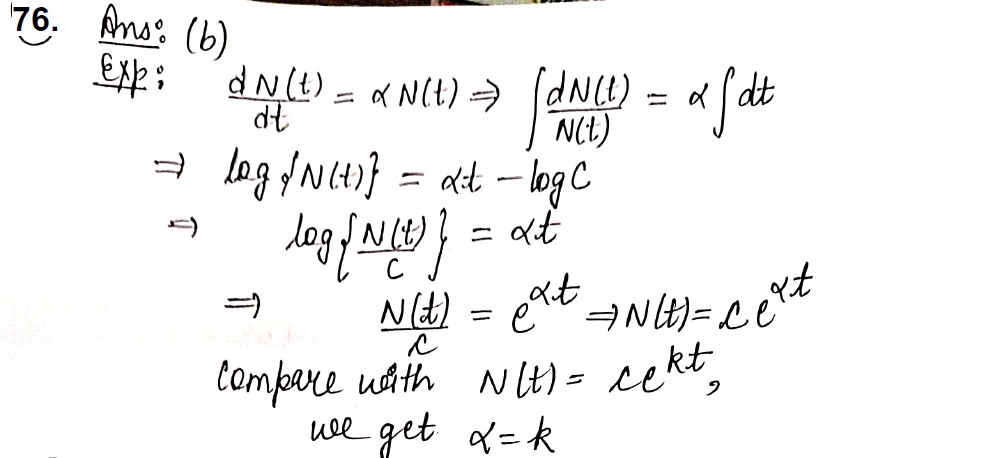 76. Ans: (b)
Exp:
dN(t)/dt = αN(t) ⇒ ∫dN(t)/N(t) = α∫dt
⇒ log{N(t)} = αt – log C
⇒ log{N(t)/C} = αt
⇒ N(t)/c = e^αt ⇒ N(t) = ce^αt
Compare with N(t) = ce^kt,
we get α = k